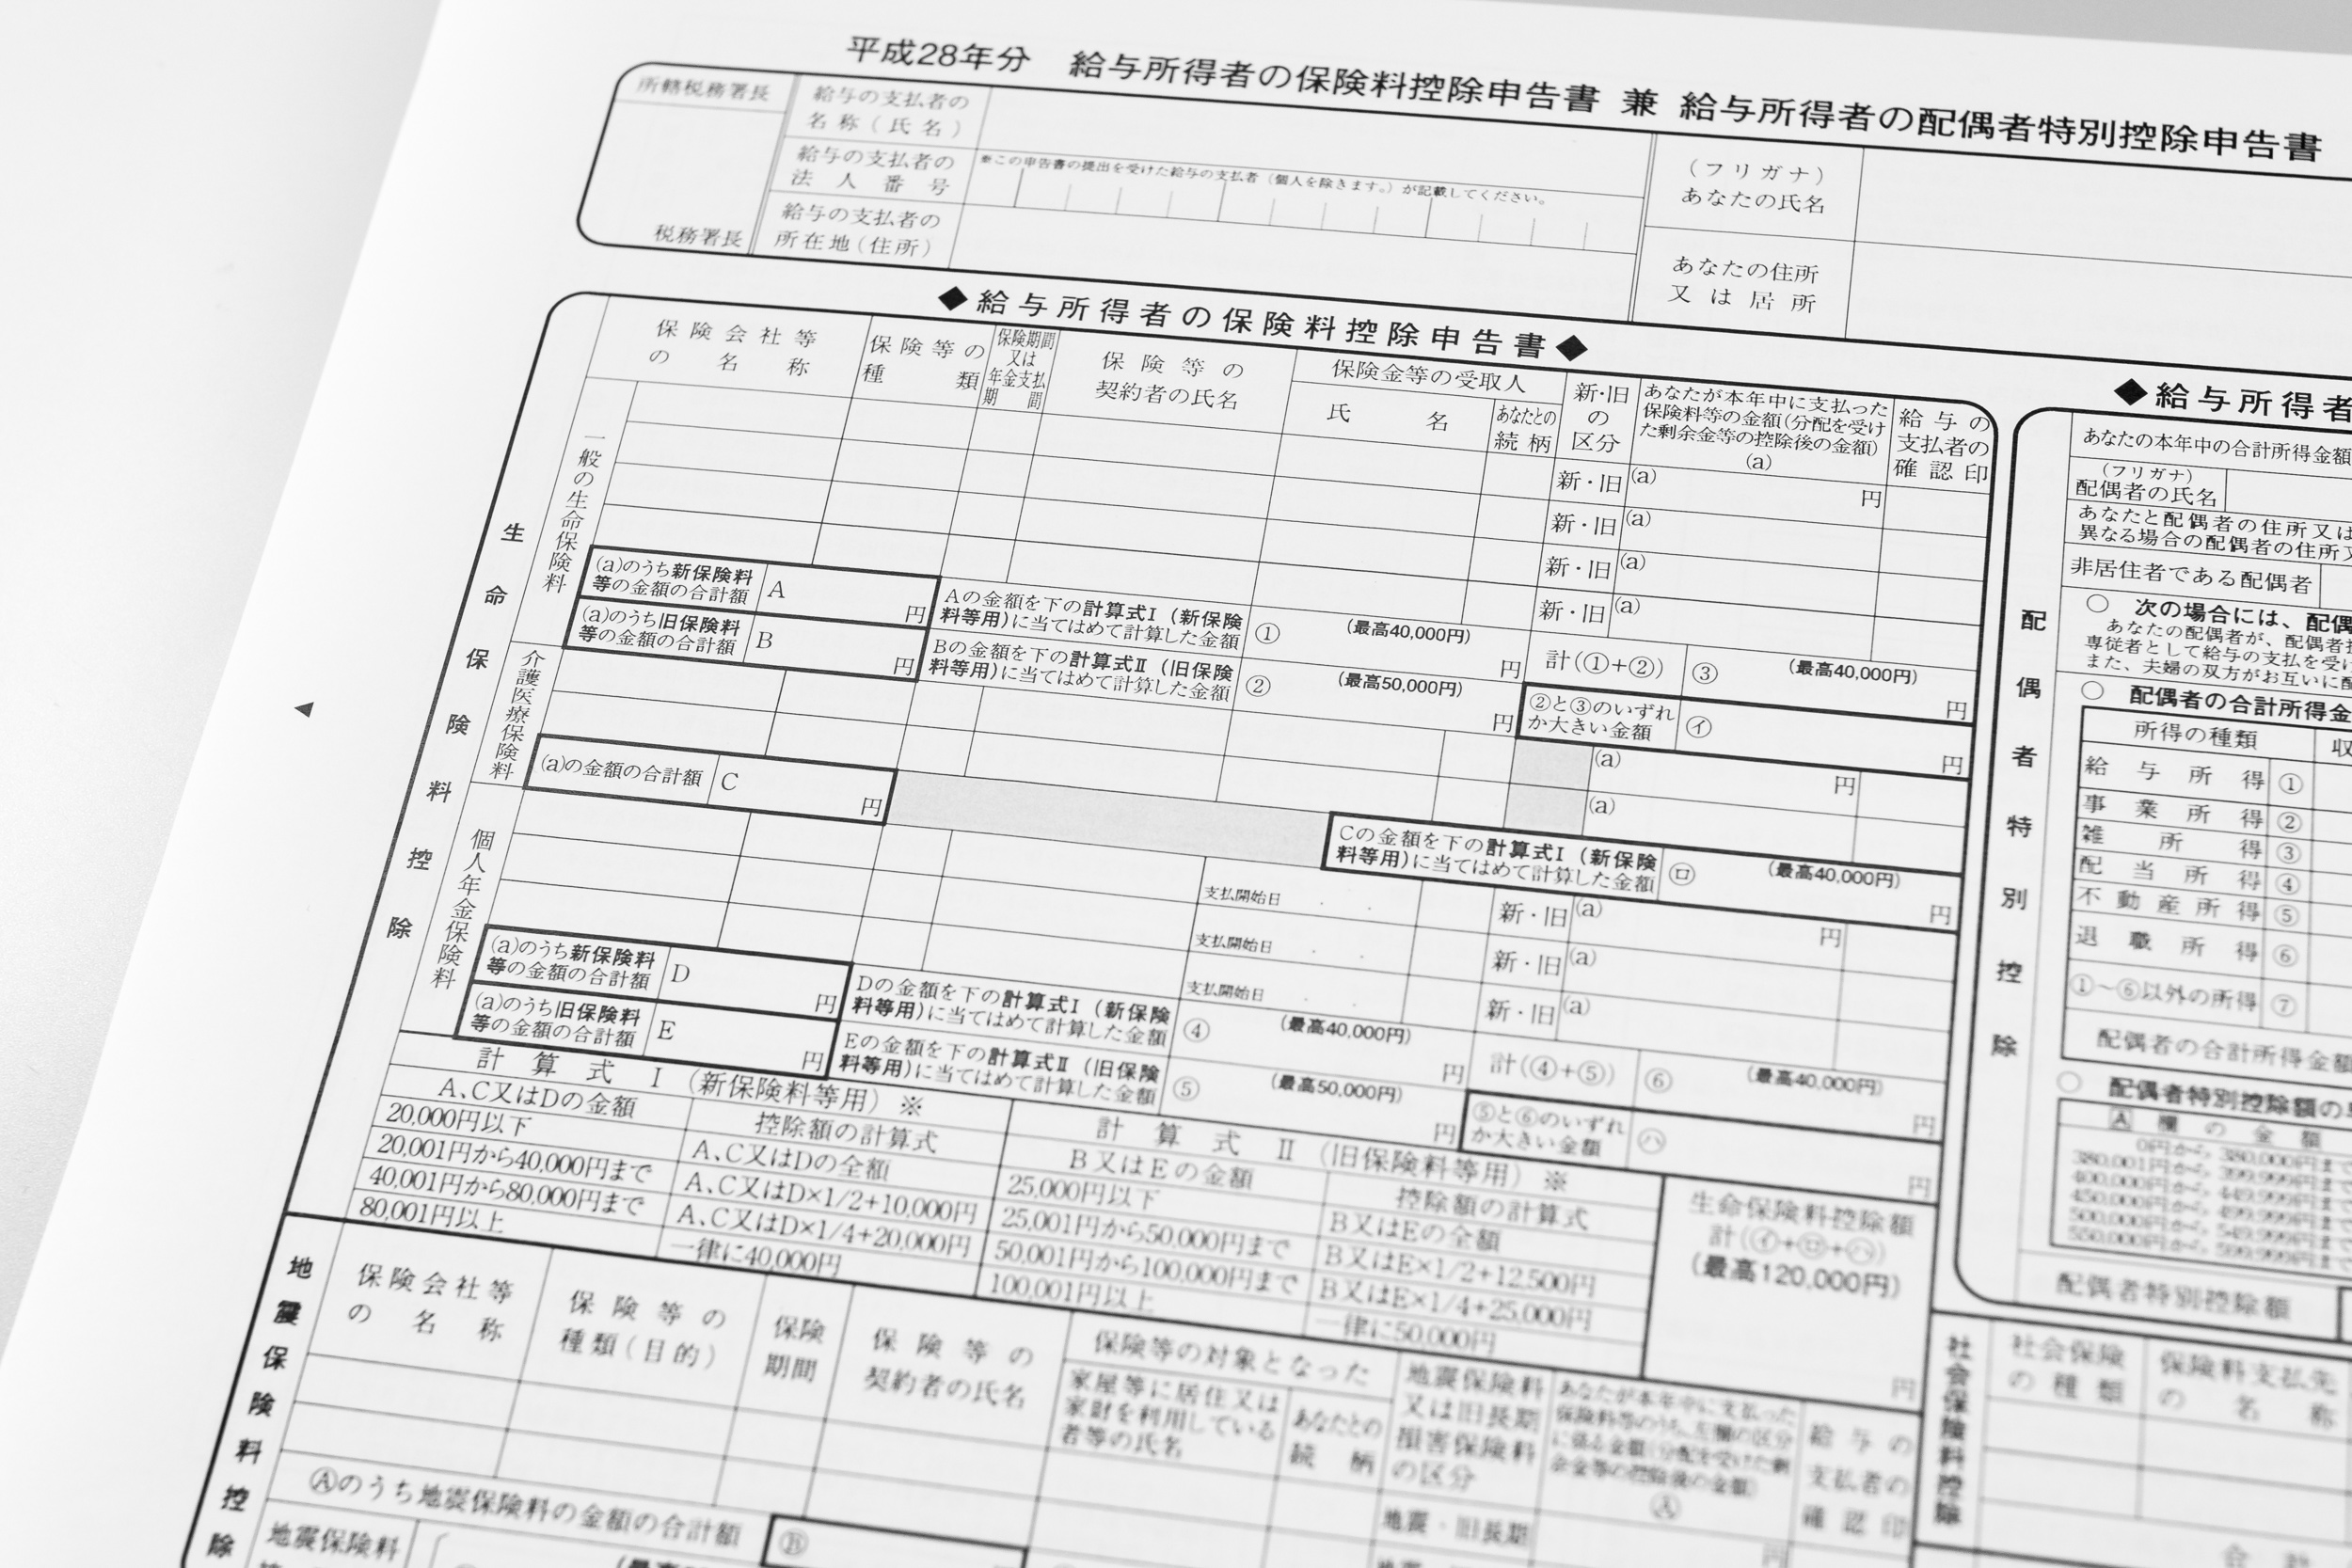 平成28年分　給与所得者の保険料控除申告書 兼 給与所得者の配偶者特別控除申告書
所轄税務署長
税務署長
給与の支払者の
名称(氏名)
給与の支払者の
法人番号
※この申告書の提出を受けた給与の支払者(個人を除きます。)が記載してください。
給与の支払者の
所在地(住所)
(フリガナ)
あなたの氏名
あなたの住所
又は居所
◆給与所得者の保険料控除申告書◆
生命保険料控除
保険会社等
の名称
保険等の
種類
保険期間
又は
年金支払
期間
保険等の
契約者の氏名
保険金等の受取人
氏名
あなたとの
続柄
新・旧
の
区分
あなたが本年中に支払った
保険料等の金額(分配を受け
た剰余金等の控除後の金額)
(a)
給与の
支払者の
確認印
一般の生命保険料
新・旧 (a) 円
新・旧 (a)
新・旧 (a)
新・旧 (a)
(a)のうち新保険料
等の金額の合計額
A 円
Aの金額を下の計算式Ⅰ(新保険
料等用)に当てはめて計算した金額
① (最高40,000円) 円
計(①+②)
③ (最高40,000円) 円
(a)のうち旧保険料
等の金額の合計額
B 円
Bの金額を下の計算式Ⅱ(旧保険
料等用)に当てはめて計算した金額
② (最高50,000円) 円
②と③のいずれ
か大きい金額
㋑ 円
介護医療保険料
(a) 円
(a)
(a)の金額の合計額
C 円
Cの金額を下の計算式Ⅰ(新保険
料等用)に当てはめて計算した金額
㋺ (最高40,000円) 円
個人年金保険料
支払開始日 . . 新・旧 (a) 円
支払開始日 . . 新・旧 (a)
支払開始日 . . 新・旧 (a)
(a)のうち新保険料
等の金額の合計額
D 円
Dの金額を下の計算式Ⅰ(新保険
料等用)に当てはめて計算した金額
④ (最高40,000円) 円
計(④+⑤)
⑥ (最高40,000円) 円
(a)のうち旧保険料
等の金額の合計額
E 円
Eの金額を下の計算式Ⅱ(旧保険
料等用)に当てはめて計算した金額
⑤ (最高50,000円) 円
⑤と⑥のいずれ
か大きい金額
㋩ 円
計算式Ⅰ(新保険料等用)※
A、C又はDの金額
控除額の計算式
20,000円以下
A、C又はDの全額
20,001円から40,000円まで
A、C又はD×1/2+10,000円
40,001円から80,000円まで
A、C又はD×1/4+20,000円
80,001円以上
一律に40,000円
計算式Ⅱ(旧保険料等用)※
B又はEの金額
控除額の計算式
25,000円以下
B又はEの全額
25,001円から50,000円まで
B又はE×1/2+12,500円
50,001円から100,000円まで
B又はE×1/4+25,000円
100,001円以上
一律に50,000円
生命保険料控除額
計(㋑+㋺+㋩)
(最高120,000円)
円
地震保険料控除
保険会社等
の名称
保険等の
種類(目的)
保険
期間
保険等の
契約者の氏名
保険等の対象となった
家屋等に居住又は
家財を利用している
者等の氏名
あなたとの
続柄
地震保険料
又は旧長期
損害保険料
の区分
あなたが本年中に支払った
保険料等のうち、左欄の区分
に係る金額(分配を受けた剰
余金等の控除後の金額)
Ⓐ
給与の
支払者の
確認印
地震・旧長期
円
Ⓐのうち地震保険料の金額の合計額
Ⓑ
地震保険料
◆給与所得者
配偶者特別控除
あなたの本年中の合計所得金額
(フリガナ)
配偶者の氏名
あなたと配偶者の住所又は
異なる場合の配偶者の住所又
非居住者である配偶者
○ 次の場合には、配偶
あなたの配偶者が、配偶者
専従者として給与の支払を受け
また、夫婦の双方がお互いに配
○ 配偶者の合計所得金
所得の種類
収
給与所得 ①
事業所得 ②
雑所得 ③
配当所得 ④
不動産所得 ⑤
退職所得 ⑥
①～⑥以外の所得 ⑦
配偶者の合計所得金額
○ 配偶者特別控除額の
A 欄の金額
0円から 380,000円ま
380,001円から 399,999円ま
400,000円から 449,999円ま
450,000円から 499,999円ま
500,000円から 549,999円ま
550,000円から 599,999円ま
配偶者特別控除額
社会保険料控除
社会保険
の種類
保険料支払先
の名称